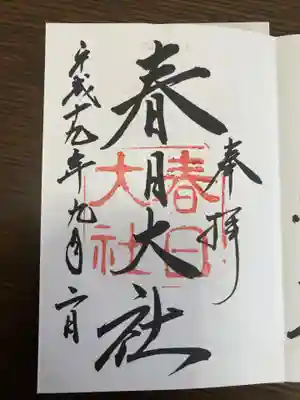 奉拝
春日大社
春日大社
平成十九年九月二日